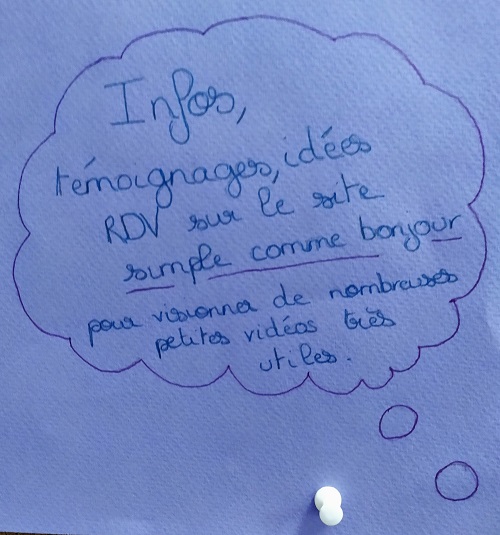 Infos,
témoignages, idées
RDV sur le site
simple comme bonjour
pour visionner de nombreuses
petites vidéos très
utiles.